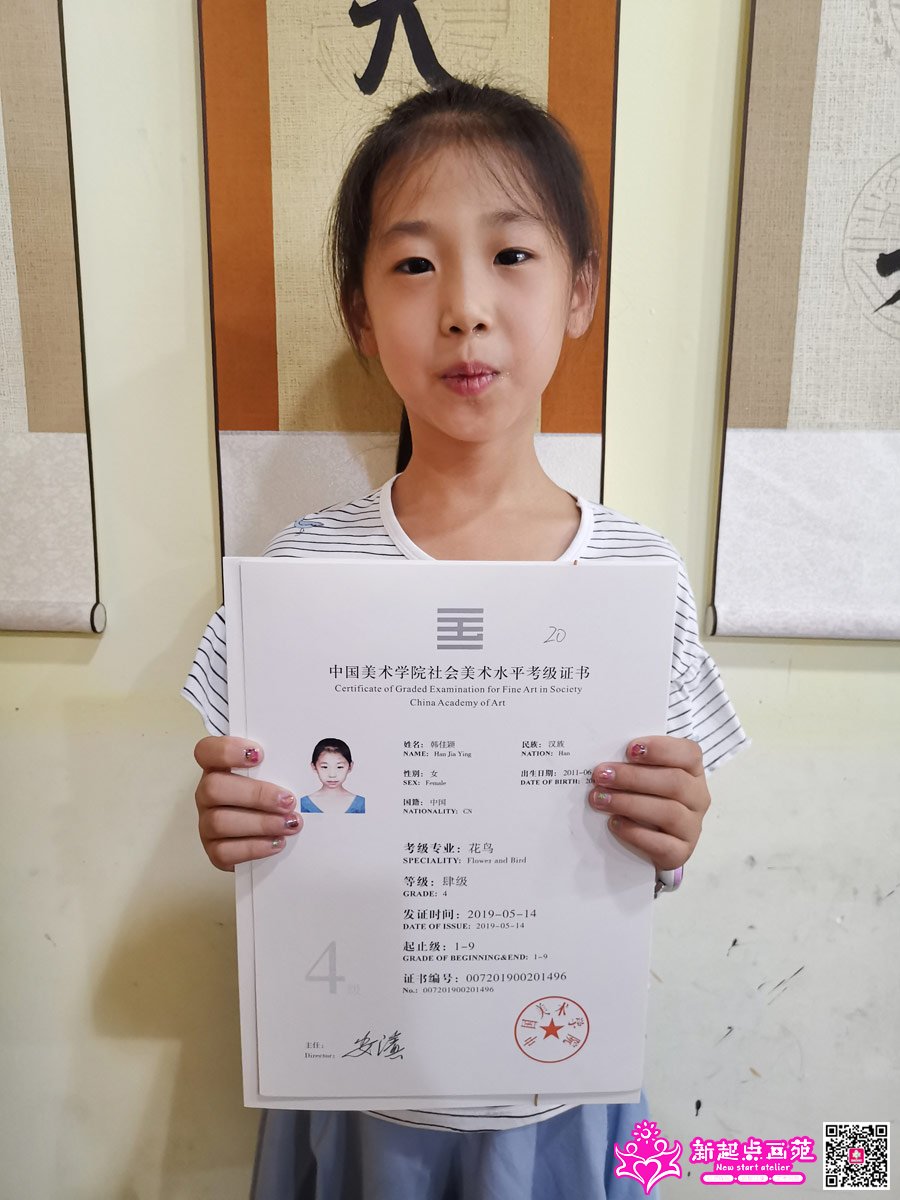 20
中国美术学院社会美术水平考级证书
Certificate of Graded Examination for Fine Art in Society
China Academy of Art
姓名：韩佳颖 民族：汉族
NAME: Han Jia Ying NATION: Han
性别：女 出生日期：2011-06
SEX: Female DATE OF BIRTH: 20
国籍：中国
NATIONALITY: CN
考级专业：花鸟
SPECIALITY: Flower and Bird
等级：肆级
GRADE: 4
发证时间：2019-05-14
DATE OF ISSUE: 2019-05-14
起止级：1-9
GRADE OF BEGINNING&END: 1-9
证书编号：007201900201496
No.: 007201900201496
4级
中国美术学院
主任：
Director:
新起点画苑
New start atelier